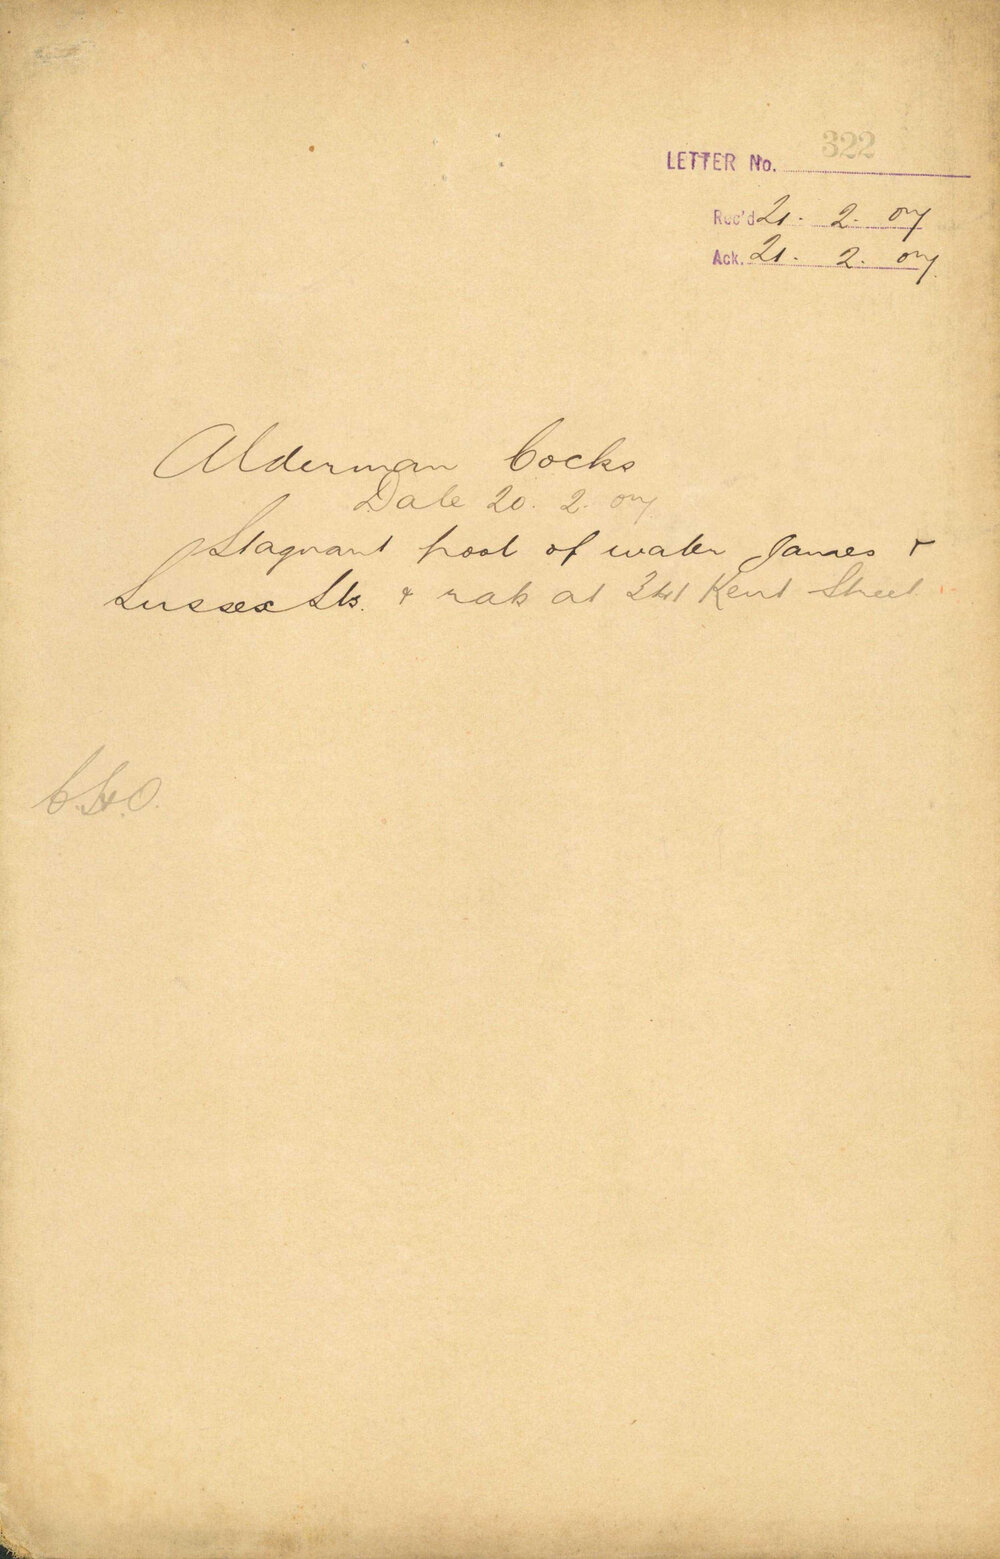 LETTER No. 322
Rec'd 21. 2. 07
Ack. 21. 2. 07
Alderman Cocks
Date 20. 2. 07
Stagnant pool of water James &
Sussex Sts. & rats at 341 Kent Street
C.H.O.